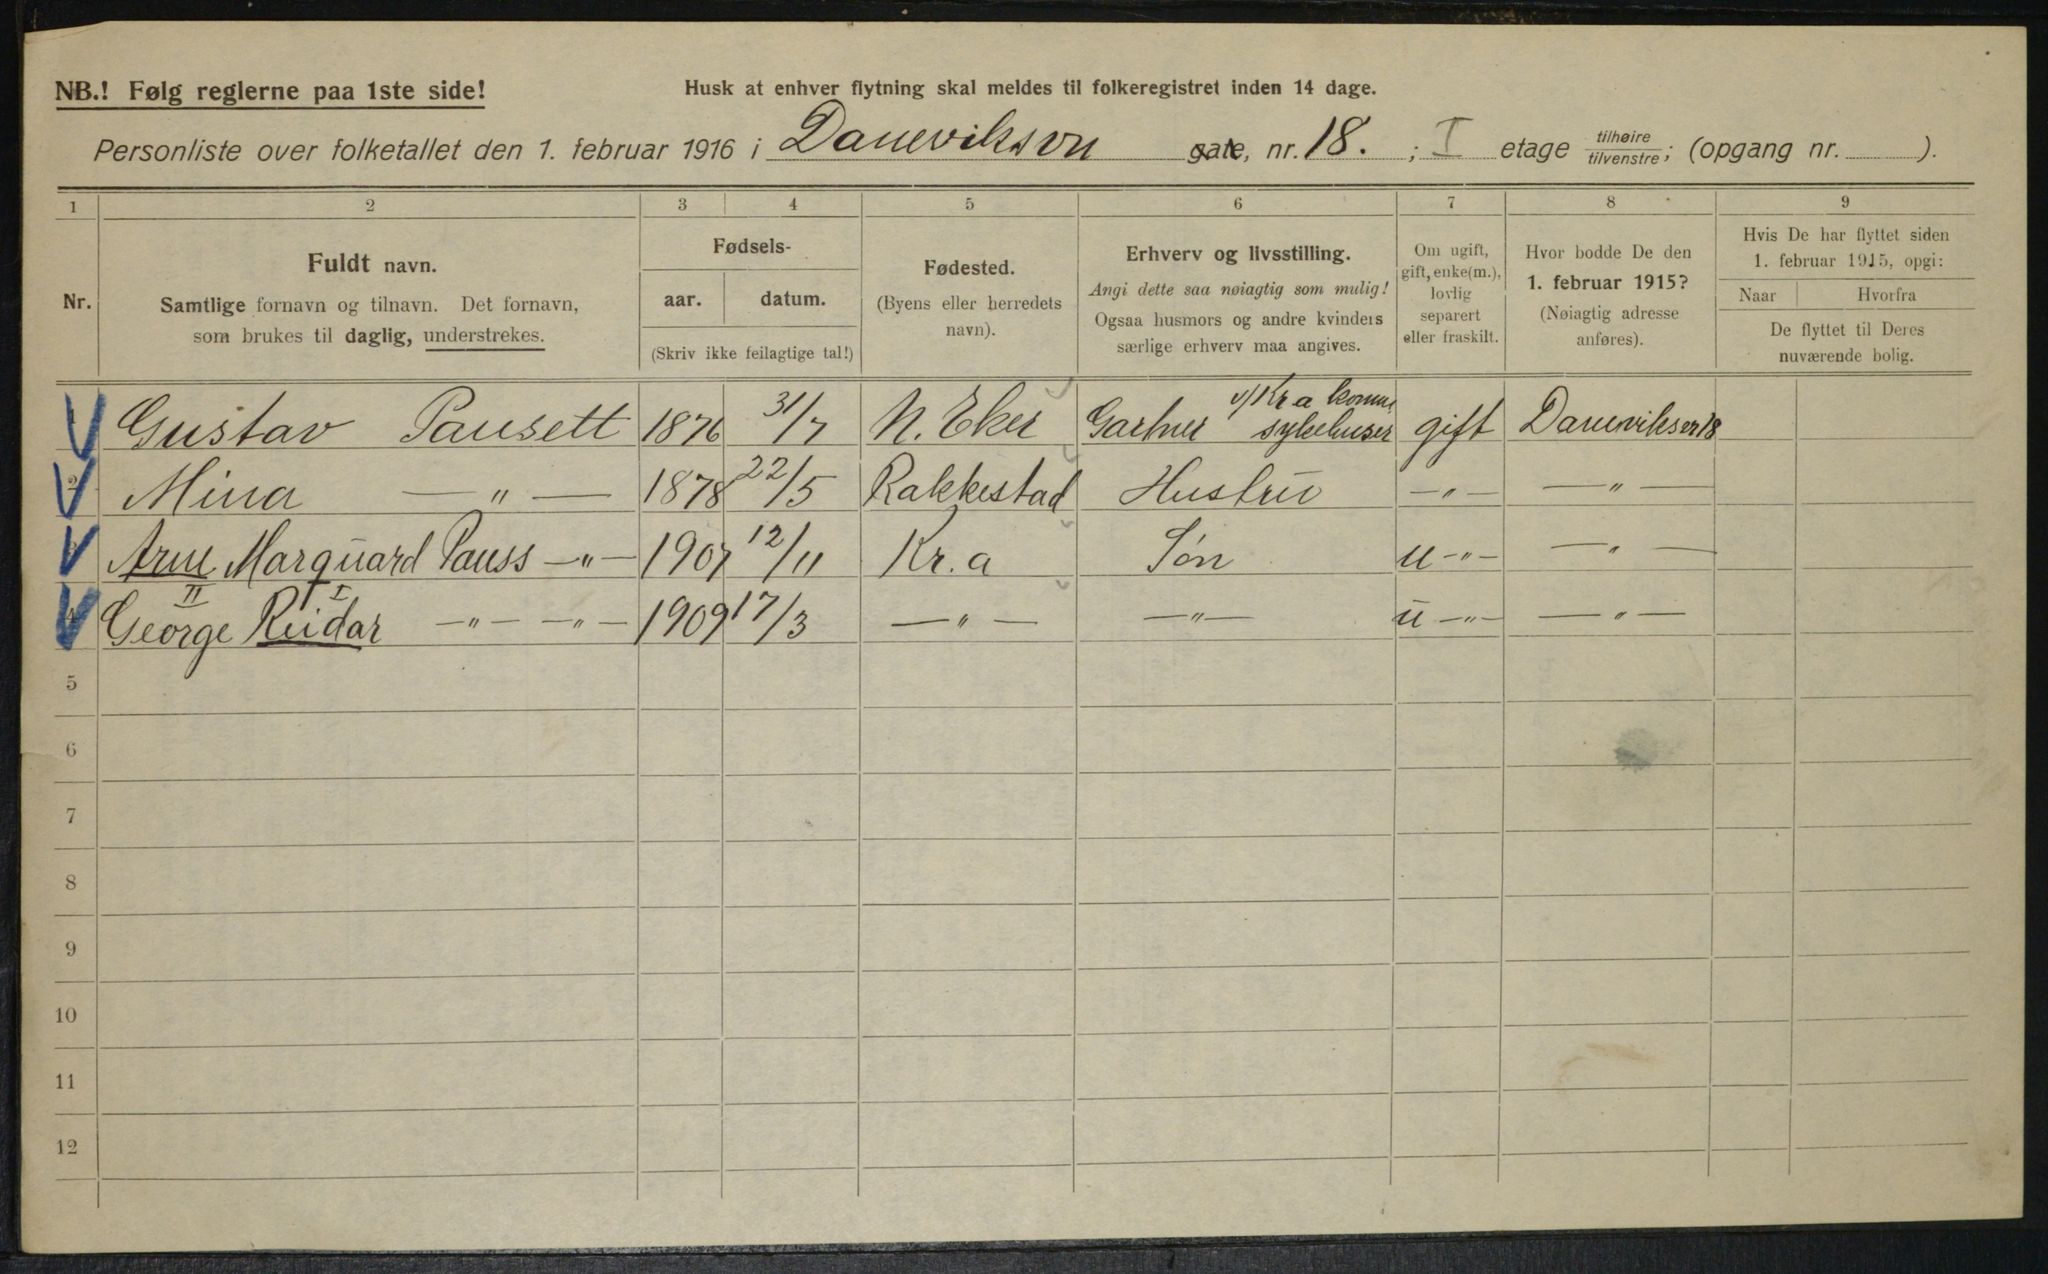 NB.! Følg reglerne paa 1ste side!
Husk at enhver flytning skal meldes til folkeregistret inden 14 dage.
Personliste over folketallet den 1. februar 1916 i Daneviksvn gate, nr. 18. ; I etage tilhøire / tilvenstre; (opgang nr. ).
1 2 3 4 5 6 7 8 9
Nr.
Fuldt navn.
Samtlige fornavn og tilnavn. Det fornavn,
som brukes til daglig, understrekes.
Fødsels-
aar. datum.
(Skriv ikke feilagtige tal!)
Fødested.
(Byens eller herredets
navn).
Erhverv og livsstilling.
Angi dette saa nøiagtig som mulig!
Ogsaa husmors og andre kvinders
særlige erhverv maa angives.
Om ugift,
gift, enke(m.),
lovlig
separert
eller fraskilt.
Hvor bodde De den
1. februar 1915?
(Nøiagtig adresse
anføres).
Hvis De har flyttet siden
1. februar 1915, opgi:
Naar Hvorfra
De flyttet til Deres
nuværende bolig.
1 Gustav Pausett 1876 31/7 N. Eker Gartner v/ Kr a komm. sykehuser gift Daneviksv 18
2 Mina —"— 1878 22/5 Rakkestad Hustru —"— —"—
3 Arne Marquard Pauss —"— 1907 12/11 Kr. a Søn u —"— —"—
II I
4 George Reidar —"— —"— 1909 17/3 —"— —"— u —"— —"—
5
6
7
8
9
10
11
12